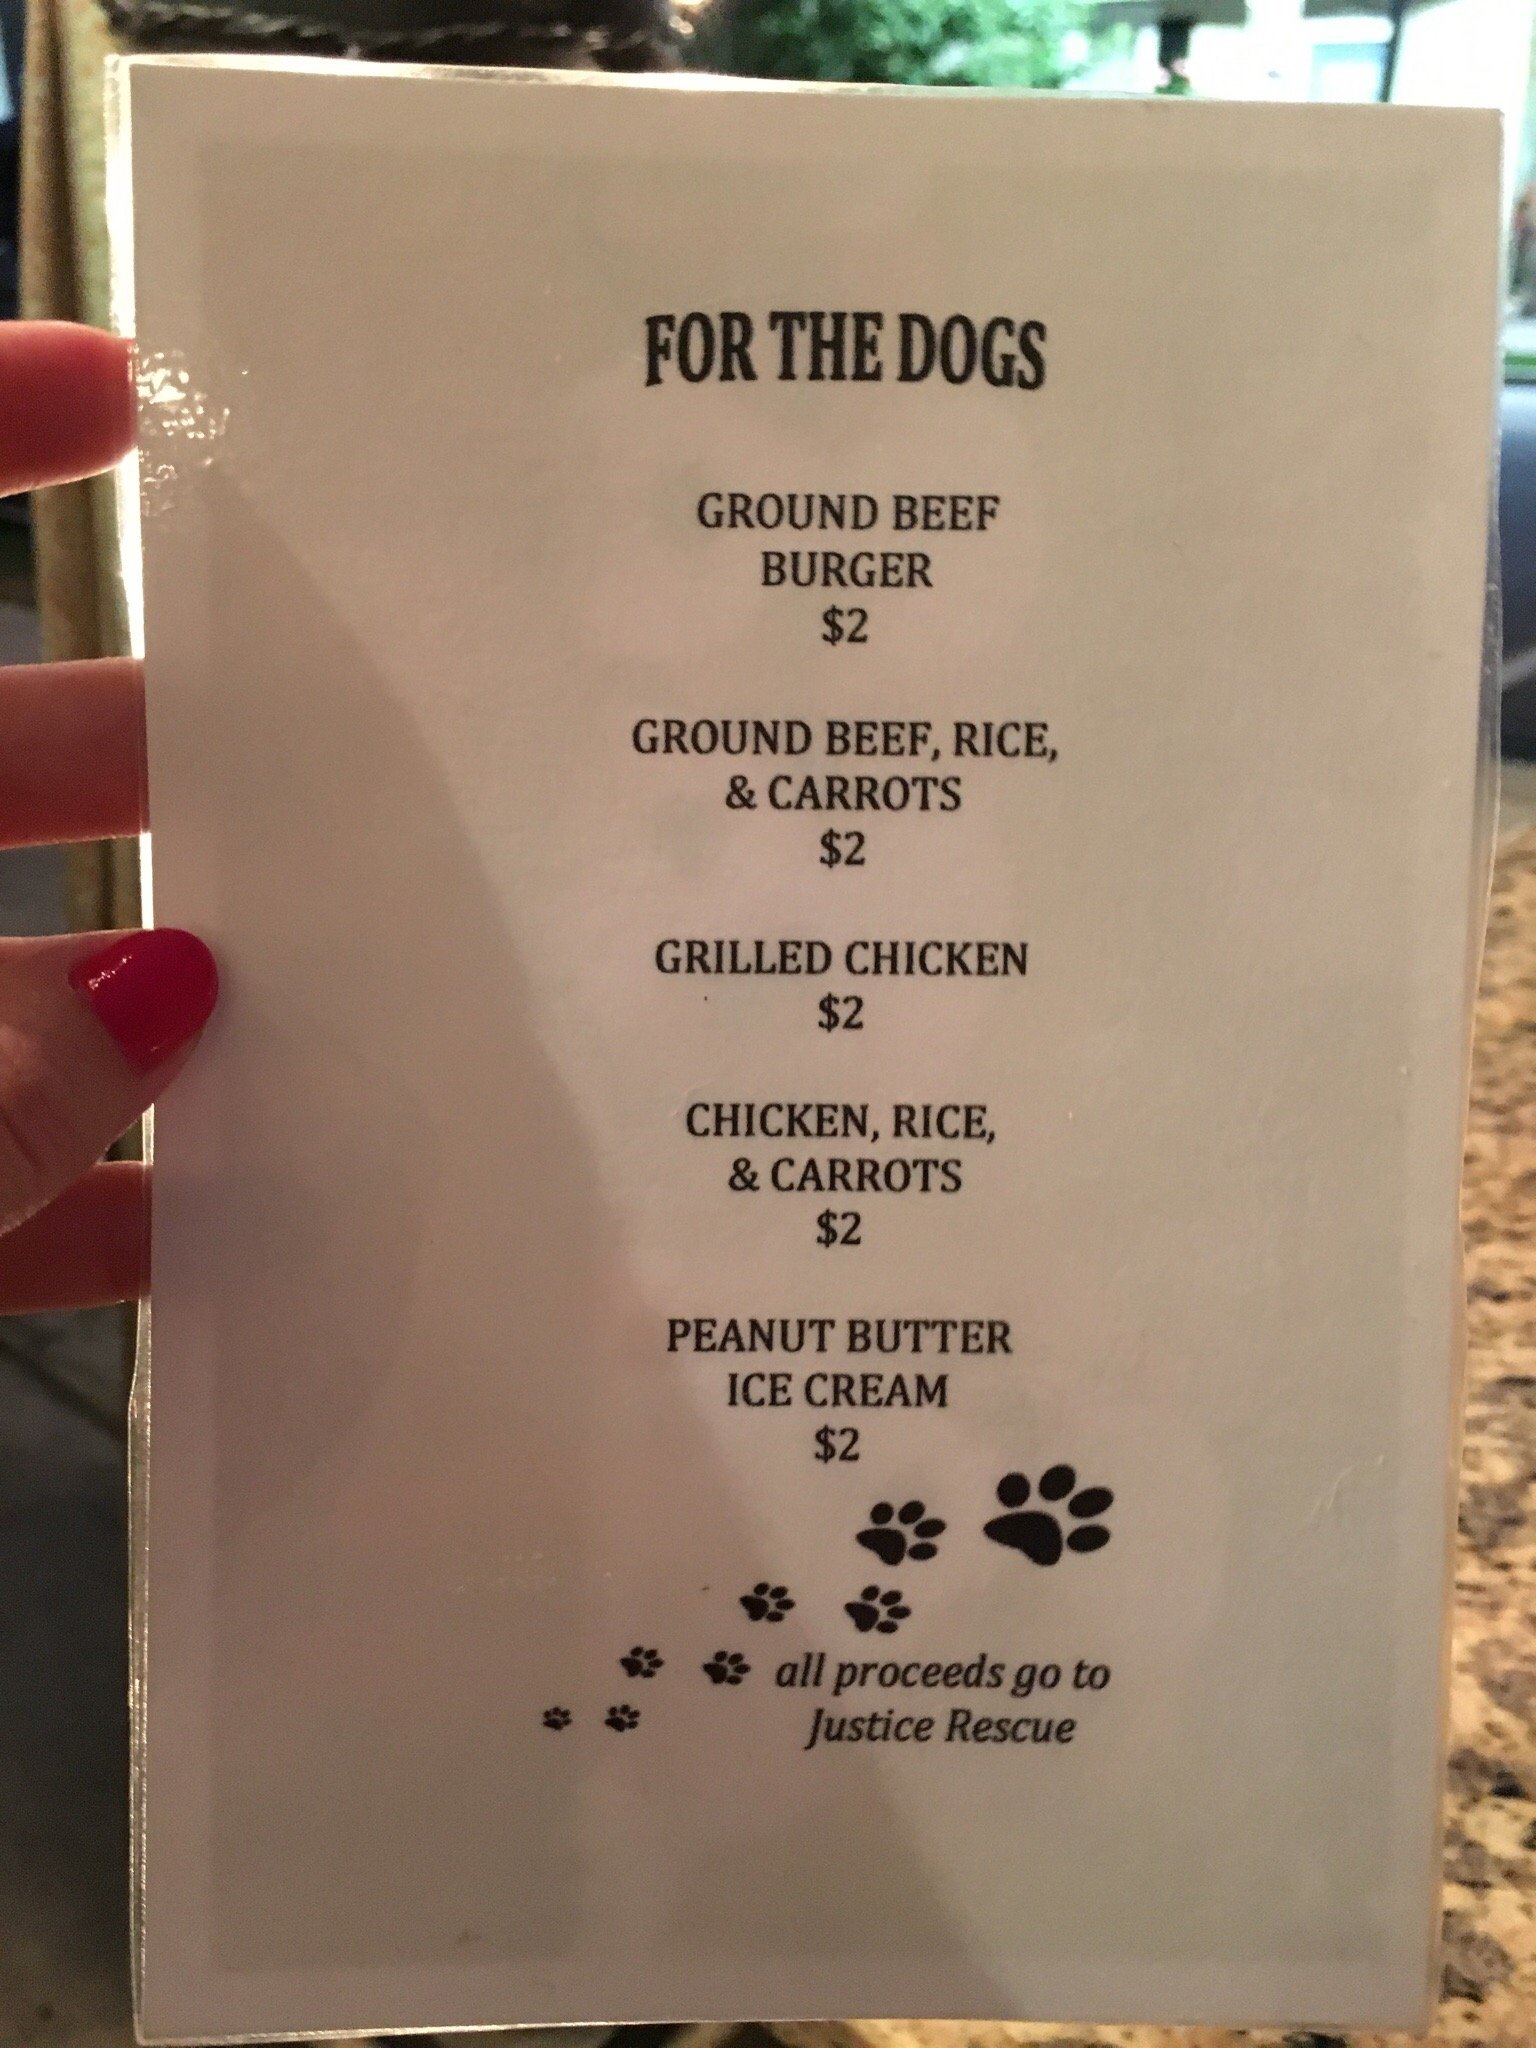 FOR THE DOGS
GROUND BEEF
BURGER
$2
GROUND BEEF, RICE,
& CARROTS
$2
GRILLED CHICKEN
$2
CHICKEN, RICE,
& CARROTS
$2
PEANUT BUTTER
ICE CREAM
$2
all proceeds go to
Justice Rescue